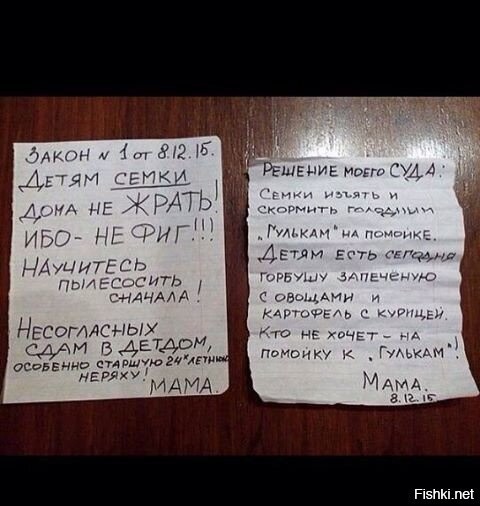 ЗАКОН N 1 от 8.12.15.
ДЕТЯМ СЕМКИ
ДОМА НЕ ЖРАТЬ!
ИБО - НЕ ФИГ!!!
НАУЧИТЕСЬ
ПЫЛЕСОСИТЬ
СНАЧАЛА!
НЕСОГЛАСНЫХ
СДАМ В ДЕТДОМ,
ОСОБЕННО СТАРШУЮ 24х ЛЕТНЮЮ
НЕРЯХУ!
МАМА.
РЕШЕНИЕ МОЕГО СУДА:
СЕМКИ ИЗЪЯТЬ И
СКОРМИТЬ ГОЛОДНЫМ
„ГУЛЬКАМ" НА ПОМОЙКЕ.
ДЕТЯМ ЕСТЬ СЕГОДНЯ
ГОРБУШУ ЗАПЕЧЁНУЮ
С ОВОЩАМИ И
КАРТОФЕЛЬ С КУРИЦЕЙ.
КТО НЕ ХОЧЕТ - НА
ПОМОЙКУ К „ГУЛЬКАМ"!
МАМА.
8.12.15.
Fishki.net